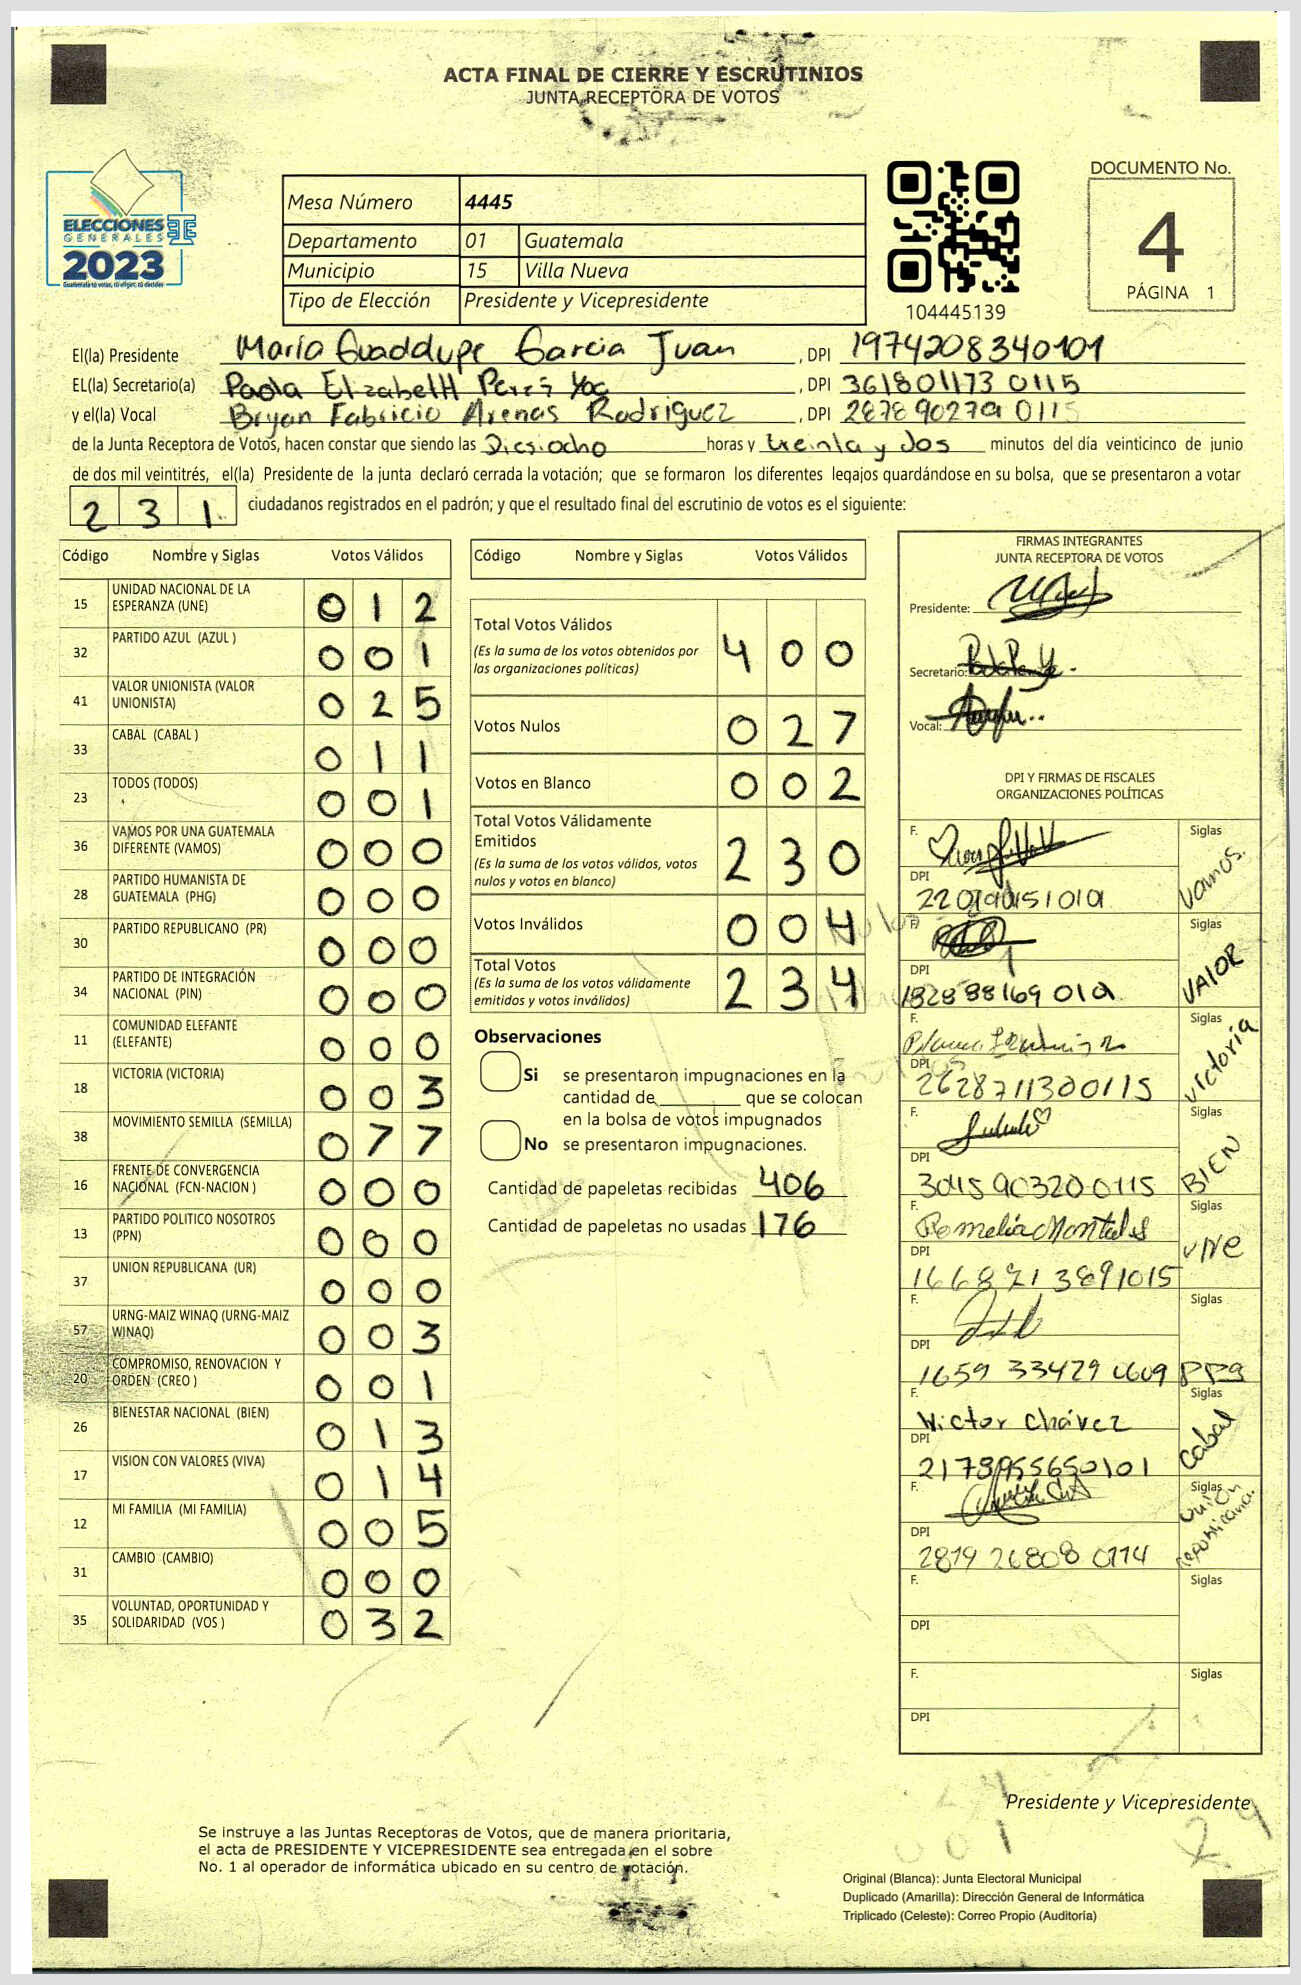 ACTA FINAL DE CIERRE Y ESCRUTINIOS
JUNTA RECEPTORA DE VOTOS
ELECCIONES
GENERALES
2023
Guatemala tú votas, tú eliges, tú decides
Mesa Número 4445
Departamento 01 Guatemala
Municipio 15 Villa Nueva
Tipo de Elección Presidente y Vicepresidente
104445139
DOCUMENTO No.
4
PÁGINA 1
El(la) Presidente María Guadalupe Garcia Juan, DPI 1974208340101
EL(la) Secretario(a) Paola ElizabetH Perez Yoc, DPI 361801173 0115
y el(la) Vocal Bryan Fabricio Arenas Rodriguez, DPI 287890279 0115
de la Junta Receptora de Votos, hacen constar que siendo las Diesiocho horas y treinta y dos minutos del día veinticinco de junio
de dos mil veintitrés, el(la) Presidente de la junta declaró cerrada la votación; que se formaron los diferentes legajos guardándose en su bolsa, que se presentaron a votar
231 ciudadanos registrados en el padrón; y que el resultado final del escrutinio de votos es el siguiente:
Código Nombre y Siglas Votos Válidos
15 UNIDAD NACIONAL DE LA ESPERANZA (UNE) 012
32 PARTIDO AZUL (AZUL ) 001
41 VALOR UNIONISTA (VALOR UNIONISTA) 025
33 CABAL (CABAL ) 011
23 TODOS (TODOS) 001
36 VAMOS POR UNA GUATEMALA DIFERENTE (VAMOS) 000
28 PARTIDO HUMANISTA DE GUATEMALA (PHG) 000
30 PARTIDO REPUBLICANO (PR) 000
34 PARTIDO DE INTEGRACIÓN NACIONAL (PIN) 000
11 COMUNIDAD ELEFANTE (ELEFANTE) 000
18 VICTORIA (VICTORIA) 003
38 MOVIMIENTO SEMILLA (SEMILLA) 077
16 FRENTE DE CONVERGENCIA NACIONAL (FCN-NACION ) 000
13 PARTIDO POLITICO NOSOTROS (PPN) 000
37 UNION REPUBLICANA (UR) 000
57 URNG-MAIZ WINAQ (URNG-MAIZ WINAQ) 003
20 COMPROMISO, RENOVACION Y ORDEN (CREO ) 001
26 BIENESTAR NACIONAL (BIEN) 013
17 VISION CON VALORES (VIVA) 014
12 MI FAMILIA (MI FAMILIA) 005
31 CAMBIO (CAMBIO) 000
35 VOLUNTAD, OPORTUNIDAD Y SOLIDARIDAD (VOS ) 032
Código Nombre y Siglas Votos Válidos
Total Votos Válidos 400
(Es la suma de los votos obtenidos por
las organizaciones políticas)
Votos Nulos 027
Votos en Blanco 002
Total Votos Válidamente
Emitidos 230
(Es la suma de los votos válidos, votos
nulos y votos en blanco)
Votos Inválidos 004
Total Votos 234
(Es la suma de los votos válidamente
emitidos y votos inválidos)
Observaciones
Si se presentaron impugnaciones en la
cantidad de que se colocan
en la bolsa de votos impugnados
No se presentaron impugnaciones.
Cantidad de papeletas recibidas 406
Cantidad de papeletas no usadas 176
FIRMAS INTEGRANTES
JUNTA RECEPTORA DE VOTOS
Presidente:
Secretario:
Vocal:
DPI Y FIRMAS DE FISCALES
ORGANIZACIONES POLÍTICAS
F. Siglas
DPI Vamos.
F. Siglas
DPI VALOR
182888169 0101
F. Siglas
DPI Victoria
2628711300115
F. Siglas
DPI BIEN
3045903200115
F. Siglas
DPI VIVE
1668713891015
F. Siglas
DPI
1659 33429 0609 PPG
F. Wictor Chávez Siglas
DPI Cabal
2173955650101
F. Siglas
DPI unión republicana.
2819 26808 0114
F. Siglas
DPI
F. Siglas
DPI
Presidente y Vicepresidente
Se instruye a las Juntas Receptoras de Votos, que de manera prioritaria,
el acta de PRESIDENTE Y VICEPRESIDENTE sea entregada en el sobre
No. 1 al operador de informática ubicado en su centro de votación.
Original (Blanca): Junta Electoral Municipal
Duplicado (Amarilla): Dirección General de Informática
Triplicado (Celeste): Correo Propio (Auditoría)